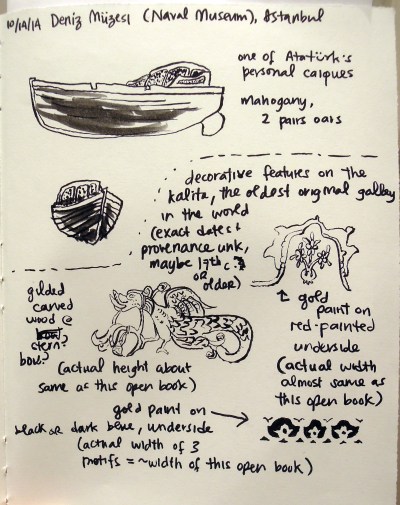 10/14/14 Deniz Müzesi (Naval Museum), Istanbul
one of Atatürk's
personal caiques
mahogany,
2 pairs oars
decorative features on the
kalita, the oldest original galley
in the world
(exact dates &
provenance unk,
maybe 17th c.?
or
older)
gilded
carved
wood @
stern?
bow?
(actual height about
same as this open book)
↑ gold
paint on
red-painted
underside
(actual width
almost same as
this open book)
gold paint on →
black or dark blue, underside
(actual width of 3
motifs = ~width of this open book)